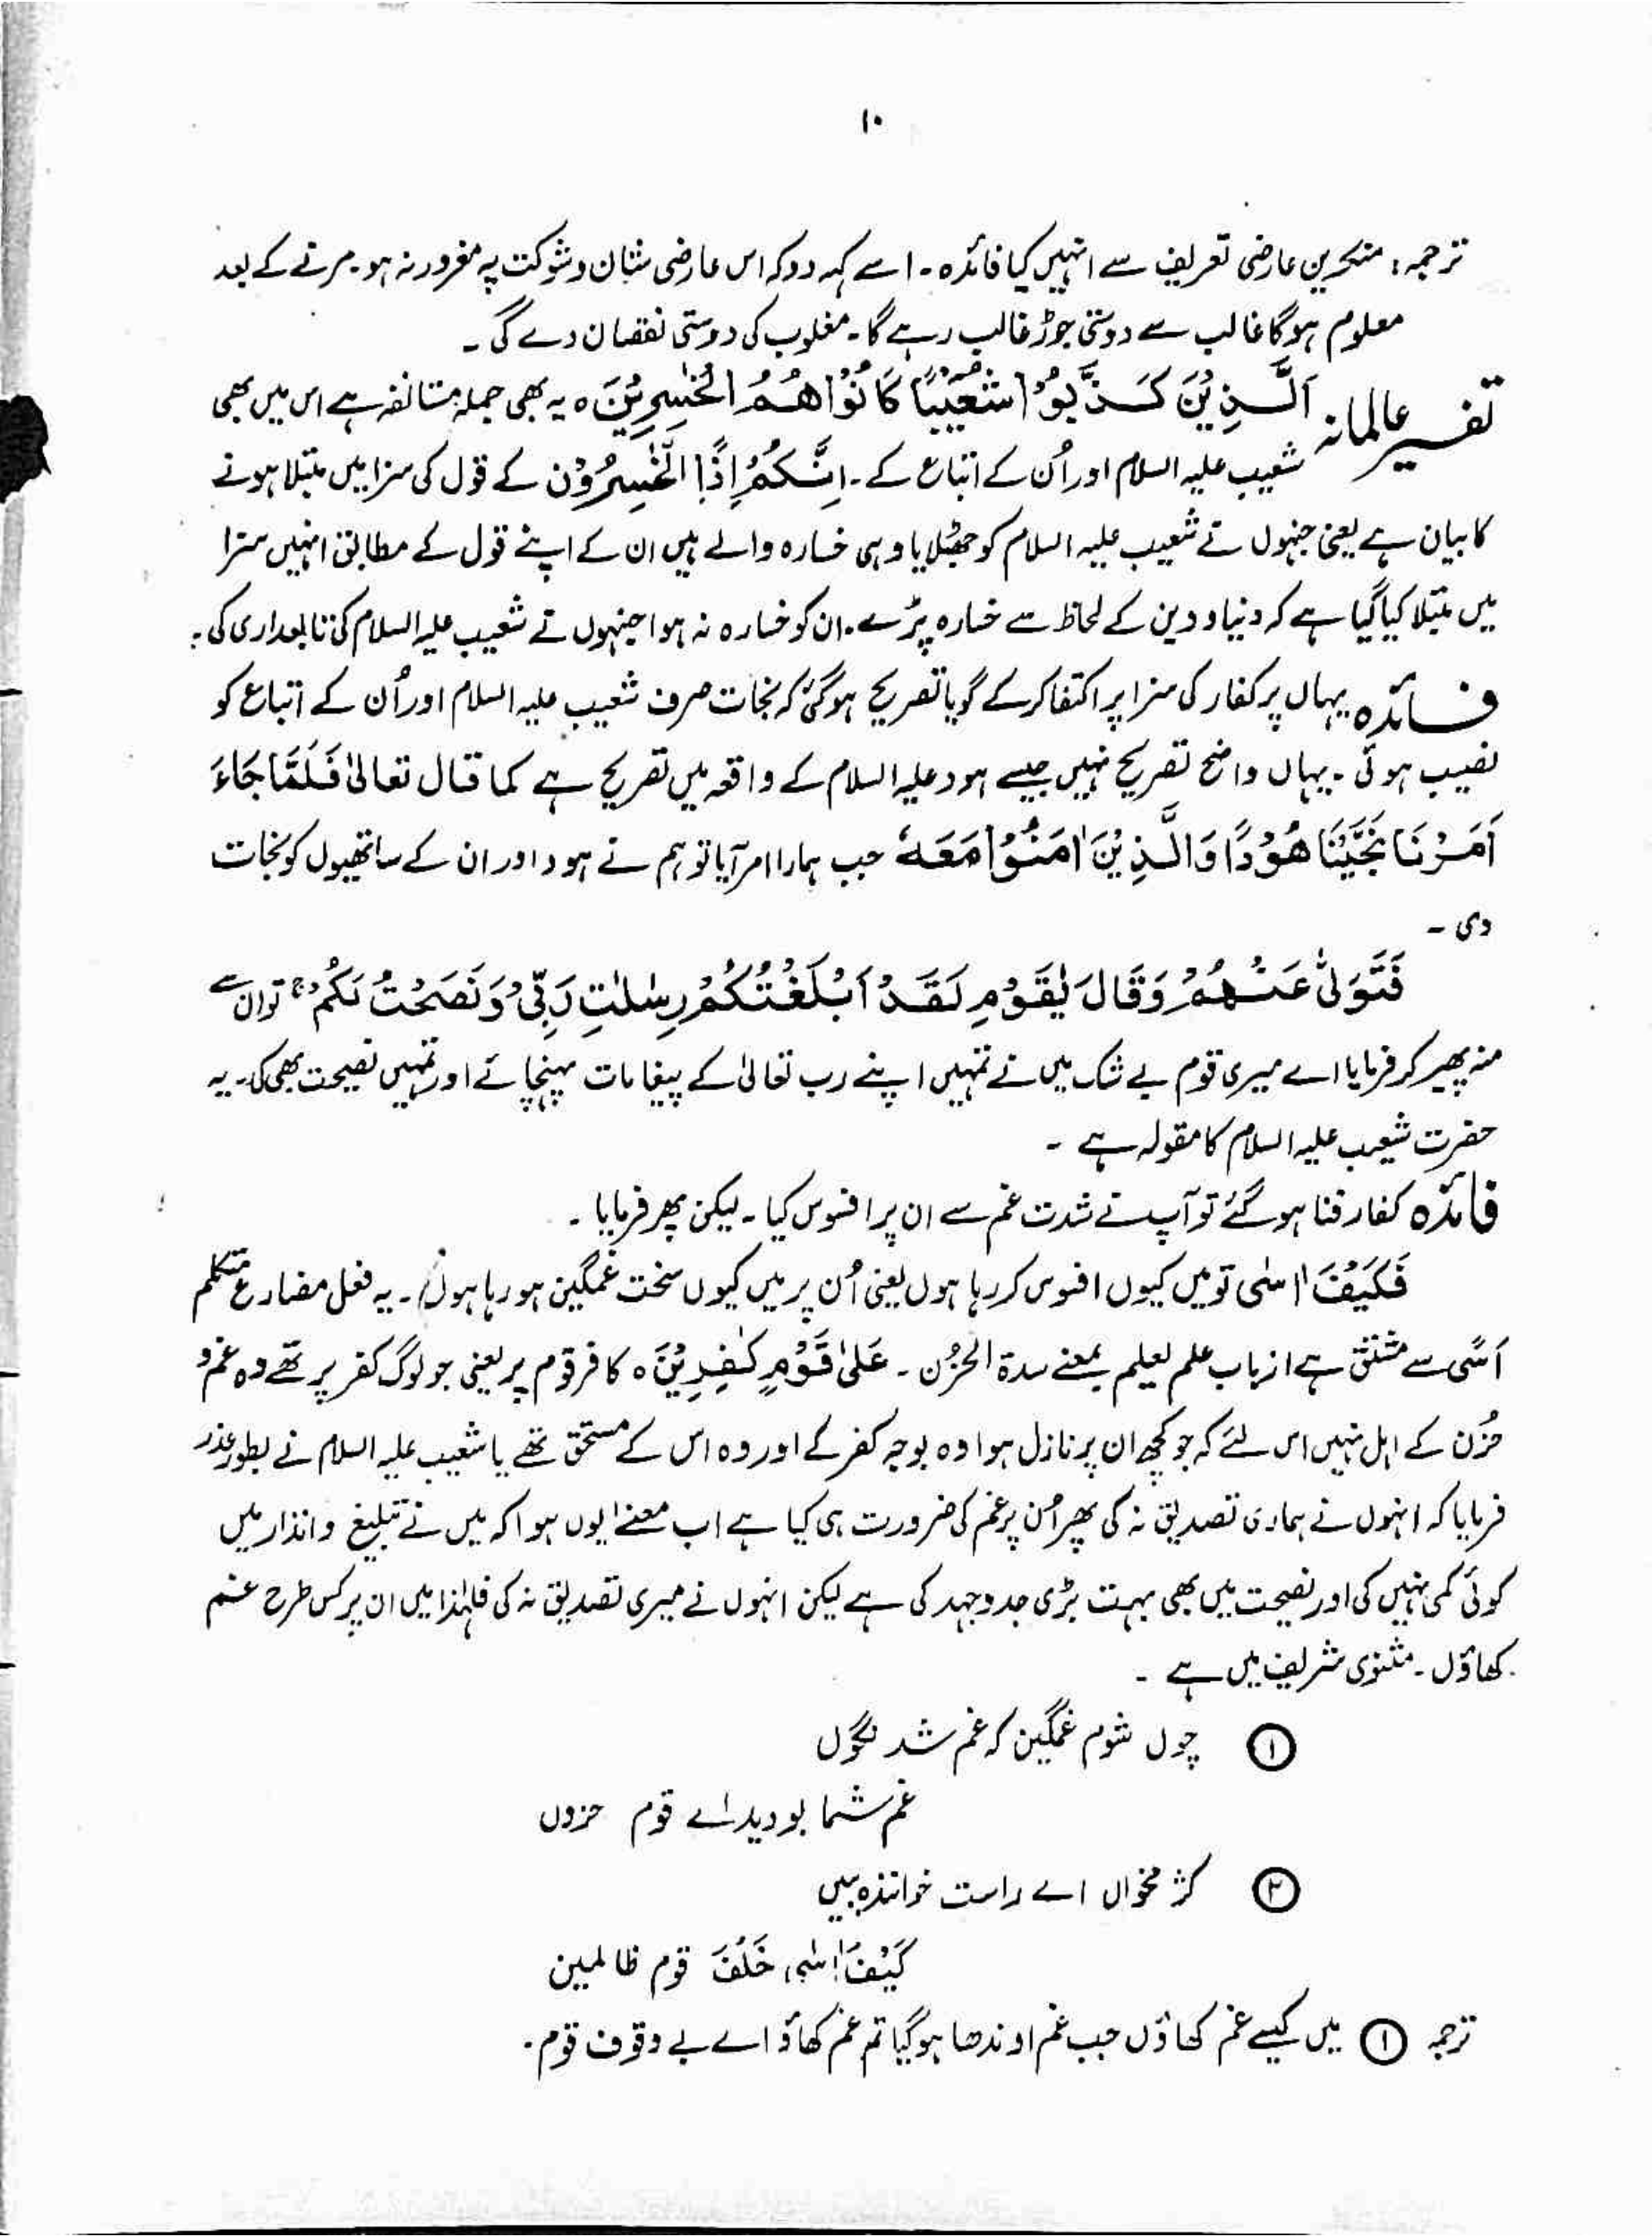 ۱۰
ترجمہ: منکرین عارضی تعریف سے انہیں کیا فائدہ۔ اسے کہہ دو کہ اس عارضی شان و شوکت پہ مغرور نہ ہو۔ مرنے کے بعد
معلوم ہوگا غالب سے دوستی جوڑ غالب رہے گا۔ مغلوب کی دوستی نقصان دے گی ۔
تفسیر عالمانہ اَلَّذِیْنَ کَذَّبُوْا شُعَیْبًا کَانُوْا ھُمُ الْخٰسِرِیْنَ ہ یہ بھی جملہ مستانفہ ہے اس میں بھی
شعیب علیہ السلام اور اُن کے اتباع کے ۔ اِنَّکُمْ اِذًا الَّخٰسِرُوْن کے قول کی سزا میں مبتلا ہونے
کا بیان ہے یعنی جنہوں نے شعیب علیہ السلام کو جھٹلایا وہی خسارہ والے ہیں ان کے اپنے قول کے مطابق انہیں سزا
میں مبتلا کیا گیا ہے کہ دنیا و دین کے لحاظ سے خسارہ پڑے۔ ان کو خسارہ نہ ہوا جنہوں نے شعیب علیہ السلام کی تابعداری کی۔
فائدہ یہاں پر کفار کی سزا پر اکتفا کرکے گویا تصریح ہوگئی کہ نجات صرف شعیب علیہ السلام اور اُن کے اتباع کو
نصیب ہوئی ۔ یہاں واضح تصریح نہیں جیسے ہود علیہ السلام کے واقعہ میں تصریح ہے کما قال تعالیٰ فَلَمَّا جَاءَ
اَمْرُنَا نَجَّیْنَا ھُوْدًا وَالَّذِیْنَ اٰمَنُوْا مَعَہٗ جب ہمارا امر آیا تو ہم نے ہود اور ان کے ساتھیوں کو نجات
دی ۔
فَتَوَلّٰی عَنْھُمْ وَقَالَ یٰقَوْمِ لَقَدْ اَبْلَغْتُکُمْ رِسٰلٰتِ رَبِّیْ وَنَصَحْتُ لَکُمْ تو ان سے
منہ پھیر کر فرمایا اے میری قوم بے شک میں نے تمہیں اپنے رب تعالیٰ کے پیغامات پہنچائے اور تمہیں نصیحت بھی کی۔ یہ
حضرت شعیب علیہ السلام کا مقولہ ہے ۔
فائدہ کفار فنا ہوگئے تو آپ نے شدت غم سے ان پر افسوس کیا ۔ لیکن پھر فرمایا ۔
فَکَیْفَ اٰسٰی تو میں کیوں افسوس کر رہا ہوں یعنی اُن پر میں کیوں سخت غمگین ہو رہا ہوں ۔ یہ فعل مضارع متکلم
اَسًی سے مشتق ہے از باب علم یعلم بمعنے سدۃ الحزن ۔ عَلٰی قَوْمٍ کٰفِرِیْنَ ہ کافر قوم پر یعنی جو لوگ کفر پر تھے وہ غم و
حُزن کے اہل نہیں اس لئے کہ جو کچھ ان پر نازل ہوا وہ بوجہ کفر کے اور وہ اس کے مستحق تھے یا شعیب علیہ السلام نے بطور عذر
فرمایا کہ انہوں نے ہماری تصدیق نہ کی پھر اُن پر غم کی ضرورت ہی کیا ہے اب معنےٰ یوں ہوا کہ میں نے تبلیغ و انذار میں
کوئی کمی نہیں کی اور نصیحت میں بھی بہت بڑی جدوجہد کی ہے لیکن انہوں نے میری تصدیق نہ کی فلہٰذا میں ان پر کس طرح غم
کھاؤں ۔ مثنوی شریف میں ہے ۔
۱ چوں شوم غمگین کہ غم شد نگوں
غم شما بودید اے قوم حزوں
۲ کژ مخواں اے راست خوانندہ ببیں
کَیْفَ اٰسٰی خَلْفَ قوم ظالمین
ترجمہ ۱ میں کیسے غم کھاؤں جب غم اوندھا ہوگیا تم غم کھاؤ اے بے وقوف قوم۔